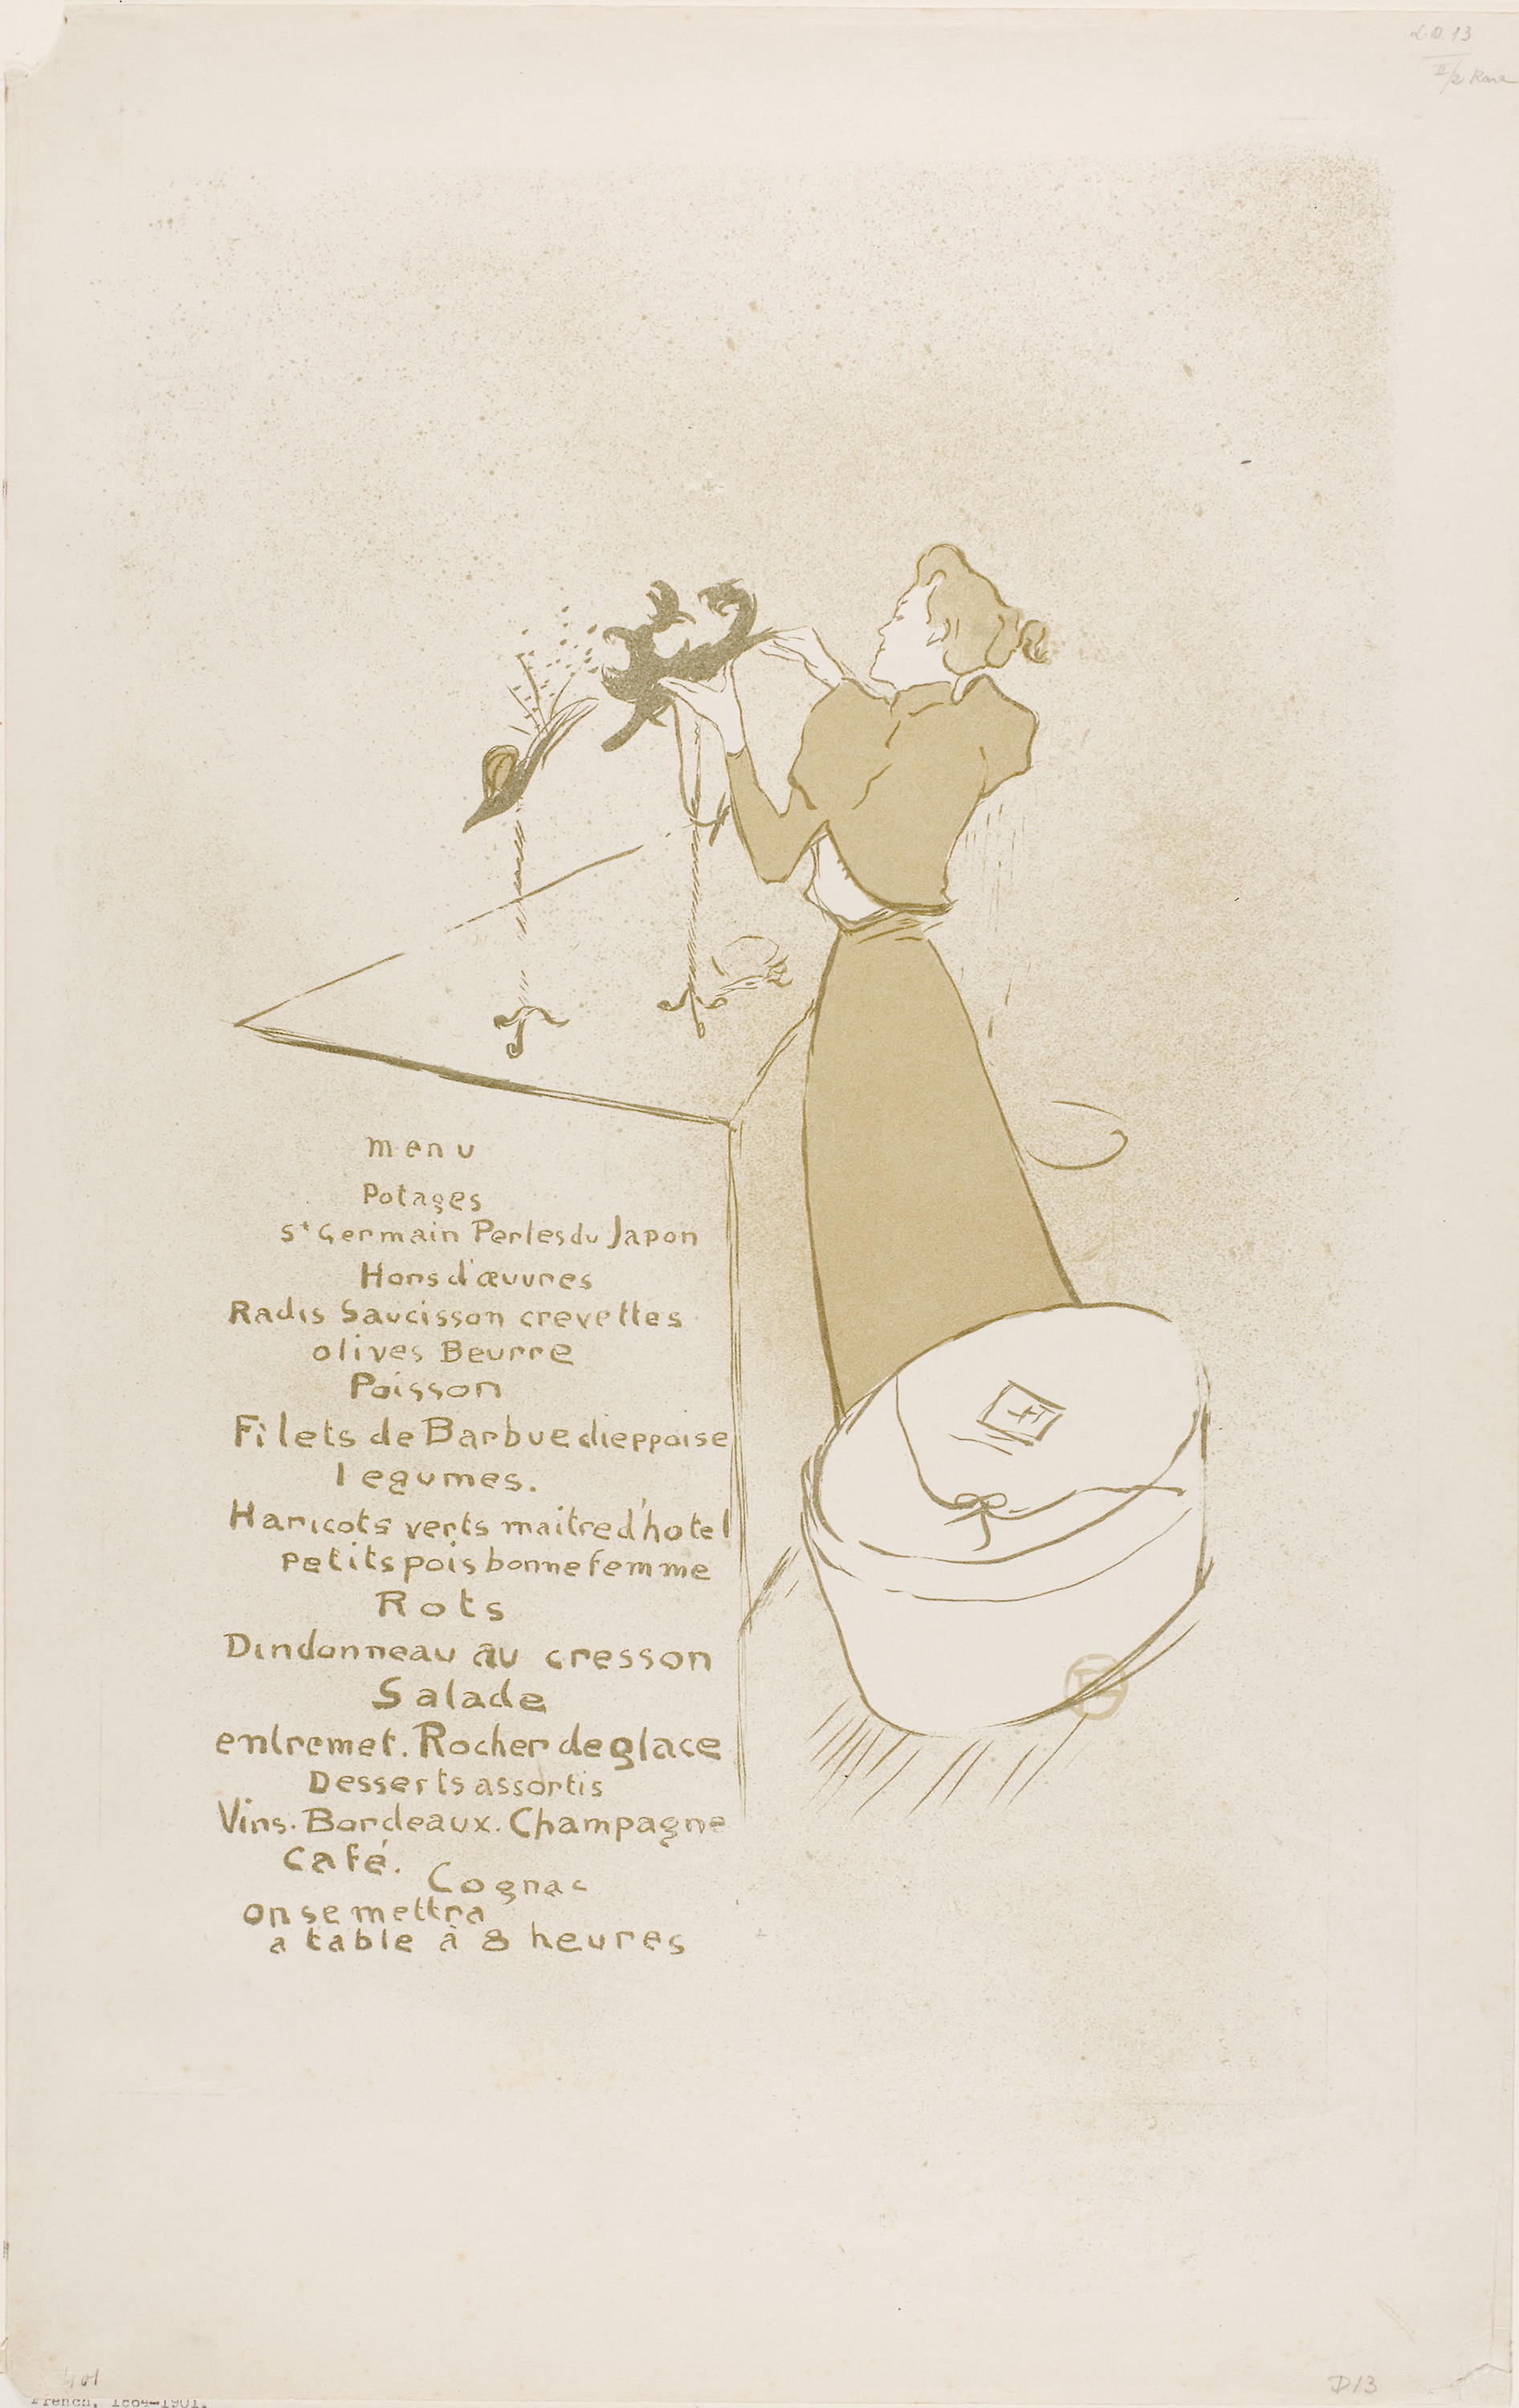 L.D. 13
II/2 Rare
menu
Potages
St Germain Perles du Japon
Hors d'œuvres
Radis Saucisson crevettes
olives Beurre
Poisson
Filets de Barbue dieppoise
legumes.
Haricots verts maitre d'hotel
petits pois bonne femme
Rots
Dindonneau au cresson
Salade
entremet. Rocher de glace
Desserts assortis
Vins. Bordeaux. Champagne
Café.
Cognac
on se mettra
a table à 8 heures
D13
French, 1864-1901.